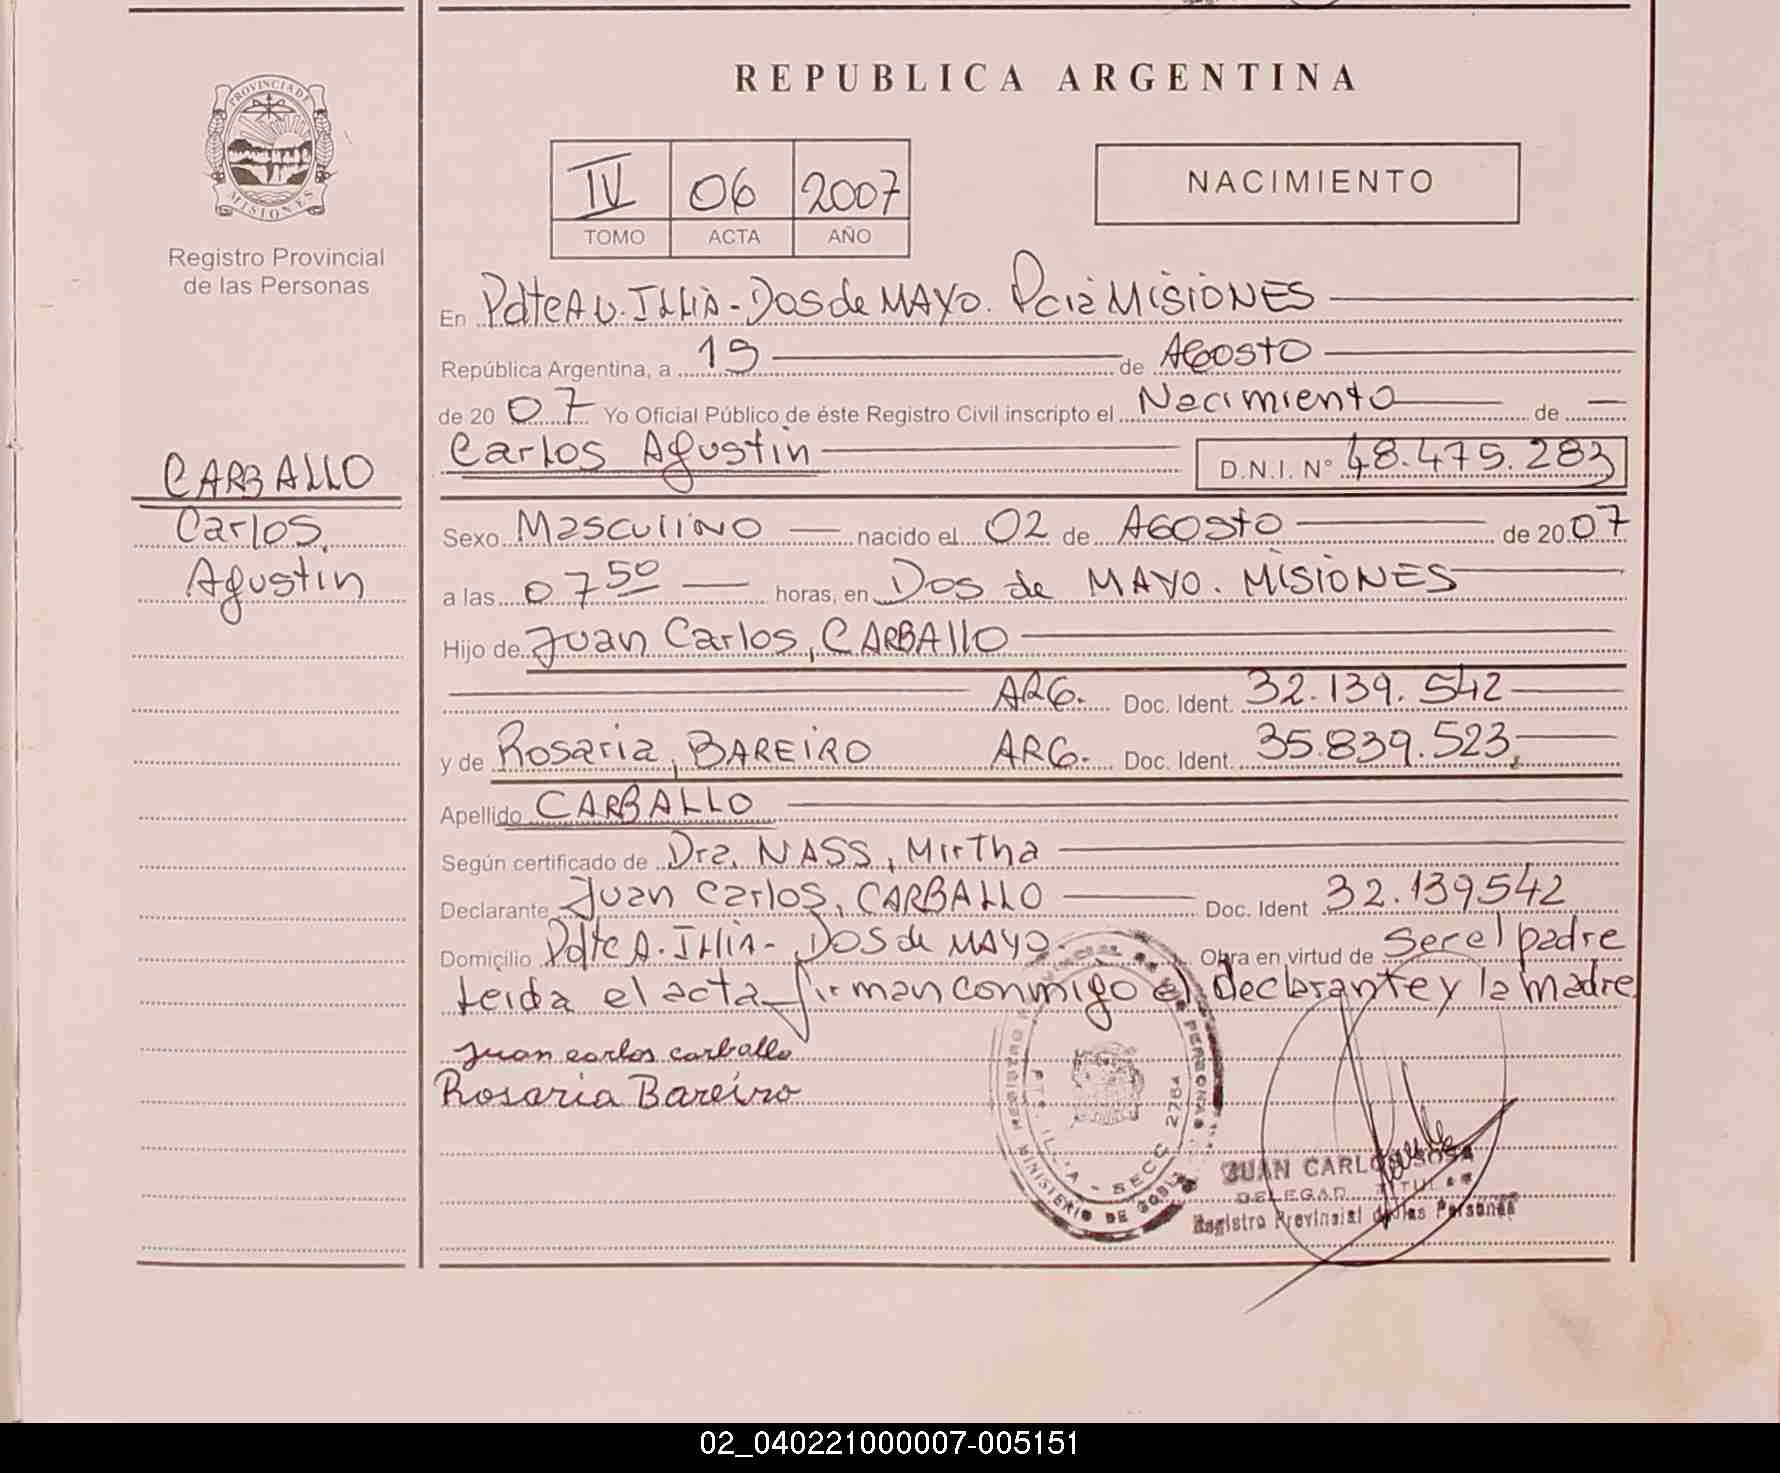 REPUBLICA ARGENTINA
PROVINCIA DE
MISIONES
Registro Provincial
de las Personas
IV 06 2007
TOMO ACTA AÑO
NACIMIENTO
En Pdte A U. ILLIA - DOS de MAYO. Pcia MISIONES
República Argentina, a 19 de AGOSTO
de 20 07 Yo Oficial Público de éste Registro Civil inscripto el Nacimiento de
Carlos Agustin D.N.I. N° 48.475.283
CARBALLO
Carlos
Agustin
Sexo Masculino nacido el 02 de AGOSTO de 20 07
a las 07 50 horas, en Dos de MAYO. MISIONES
Hijo de Juan Carlos, CARBALLO
ARG. Doc. Ident. 32.139.542
y de Rosaria, BAREIRO ARG. Doc. Ident. 35.839.523
Apellido CARBALLO
Según certificado de Dra. NASS, Mirtha
Declarante Juan Carlos, CARBALLO Doc. Ident 32.139542
Domicilio Pdte A. ILLIA - DOS de MAYO Obra en virtud de Ser el padre
Leida el acta firman conmigo el Declarante y la madre
Juan carlos carballo
Rosaria Bareiro
REGISTRO PROVINCIAL DE LAS PERSONAS
MINISTERIO DE GOBIERNO
PTE. ILLIA - SECC 2784
JUAN CARLOS SOSA
DELEGADO TITULAR
Registro Provincial de las Personas
02_040221000007-005151